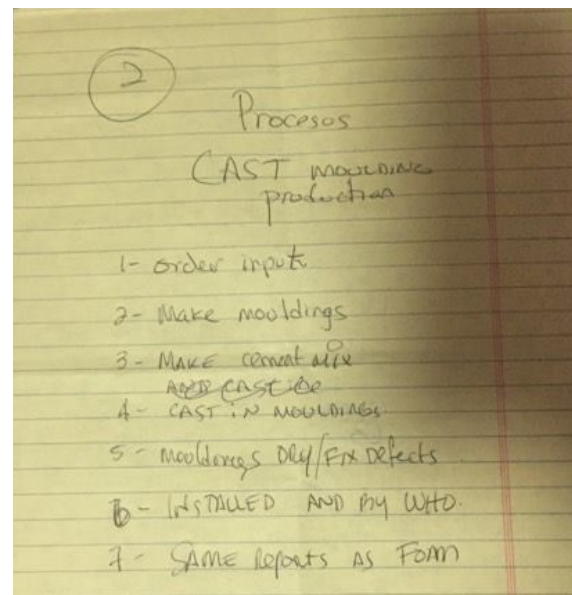 2
Procesos
CAST MOULDING
production
1- order inputs
2- Make mouldings
3- MAKE cement mix
AND CAST
4- CAST IN MOULDINGS.
5- Mouldings DRY/FIX Defects
6- INSTALLED AND BY WHO.
7- SAME Reports AS FOAM